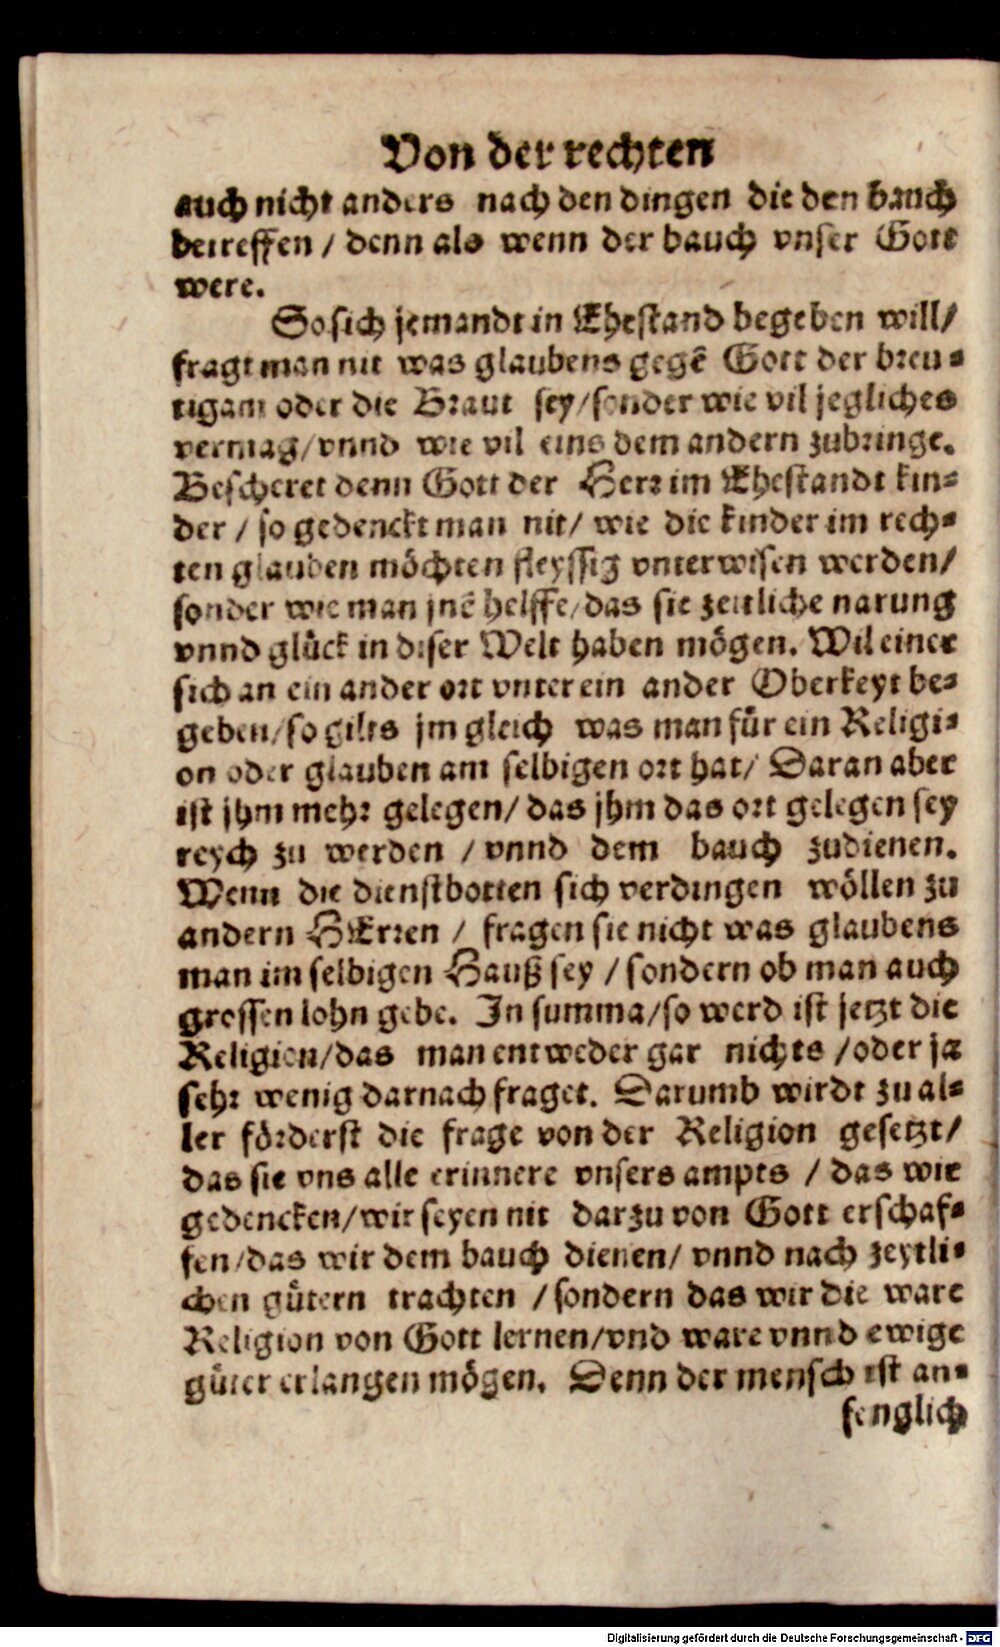 Von der rechten
auch nicht anders nach den dingen die den bauch
betreffen / denn als wenn der bauch vnser Gott
were.
So sich jemandt in Ehestand begeben will/
fragt man nit was glaubens gegē Gott der breu-
tigam oder die Braut sey/sonder wie vil jegliches
vermag/vnnd wie vil eins dem andern zubringe.
Bescheret denn Gott der Herr im Ehestandt kin-
der / so gedenckt man nit/ wie die kinder im rech-
ten glauben möchten fleyssig vnterwisen werden/
sonder wie man jnē helffe/das sie zeitliche narung
vnnd glück in diser Welt haben mögen. Wil einer
sich an ein ander ort vnter ein ander Oberkeyt be-
geben/so gilts jm gleich was man für ein Religi-
on oder glauben am selbigen ort hat/ Daran aber
ist jhm mehr gelegen/ das jhm das ort gelegen sey
reych zu werden / vnnd dem bauch zudienen.
Wenn die dienstbotten sich verdingen wöllen zu
andern HErren / fragen sie nicht was glaubens
man im selbigen Hauß sey / sondern ob man auch
grossen lohn gebe. In summa/so werd ist jetzt die
Religion/das man entweder gar nichts /oder ja
sehr wenig darnach fraget. Darumb wirdt zu al-
ler förderst die frage von der Religion gesetzt/
das sie vns alle erinnere vnsers ampts / das wir
gedencken/wir seyen nit darzu von Gott erschaf-
fen/das wir dem bauch dienen/ vnnd nach zeytli-
chen gütern trachten /sondern das wir die ware
Religion von Gott lernen/vnd ware vnnd ewige
güter erlangen mögen. Denn der mensch ist an-
fenglich
Digitalisierung gefördert durch die Deutsche Forschungsgemeinschaft - DFG